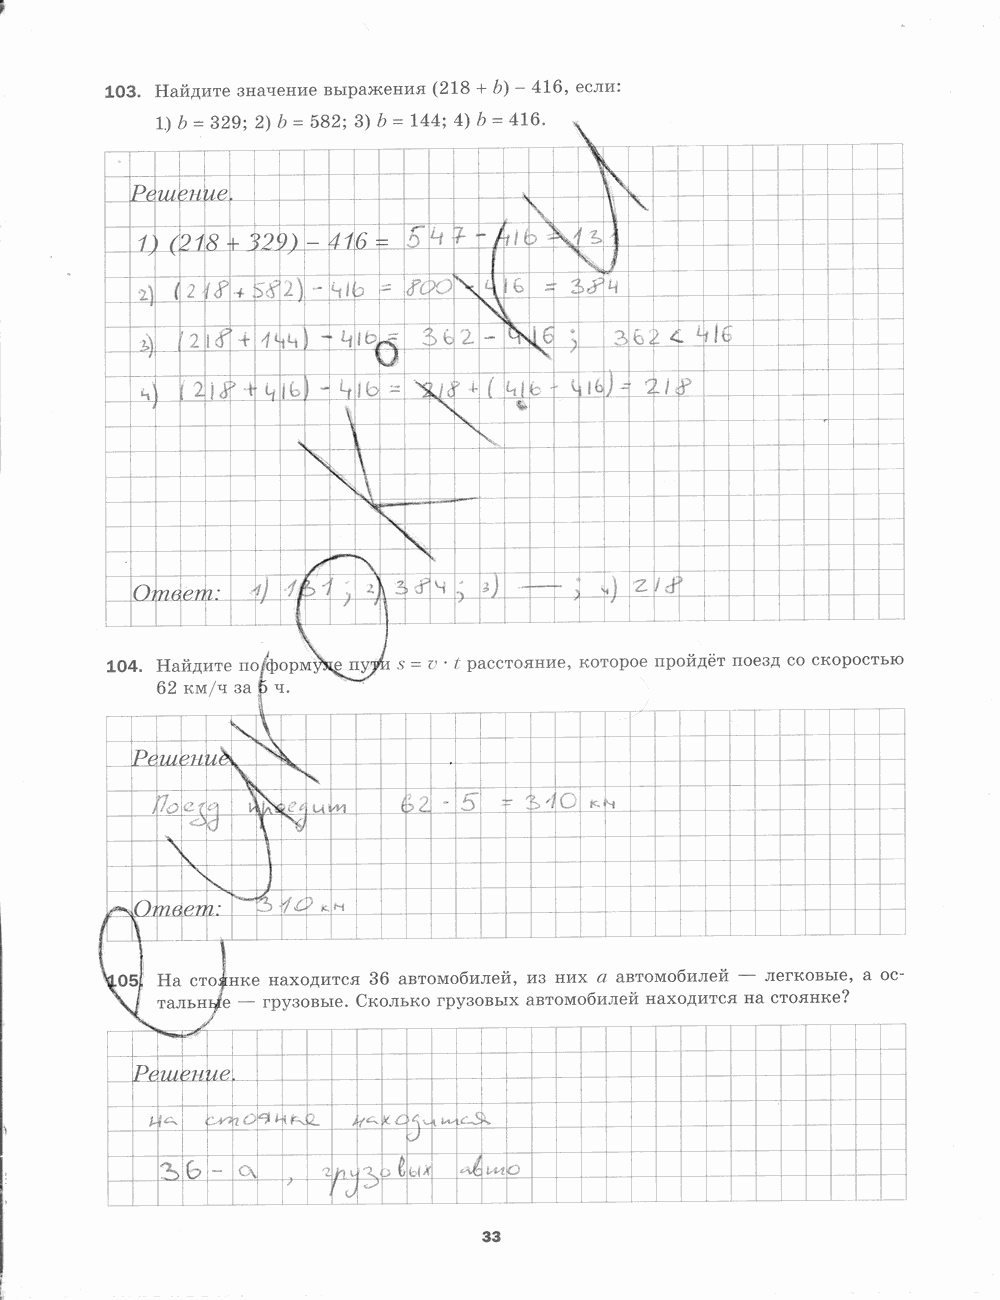 103. Найдите значение выражения (218 + b) – 416, если:
1) b = 329; 2) b = 582; 3) b = 144; 4) b = 416.
Решение.
1) (218 + 329) – 416 = 547 - 416 = 131
2) (218+582) - 416 = 800 - 416 = 384
3) (218 + 144) - 416 = 362 - 416 ; 362 < 416
4) (218 + 416) - 416 = 218 + ( 416 - 416) = 218
Ответ: 1) 131 ; 2) 384 ; 3) — ; 4) 218
104. Найдите по формуле пути s = v · t расстояние, которое пройдёт поезд со скоростью
62 км/ч за 5 ч.
Решение
Поезд проедит 62 · 5 = 310 км
Ответ: 310 км
105. На стоянке находится 36 автомобилей, из них a автомобилей — легковые, а ос-
тальные — грузовые. Сколько грузовых автомобилей находится на стоянке?
Решение.
на стоянке находится
36 - a , грузовых авто
33